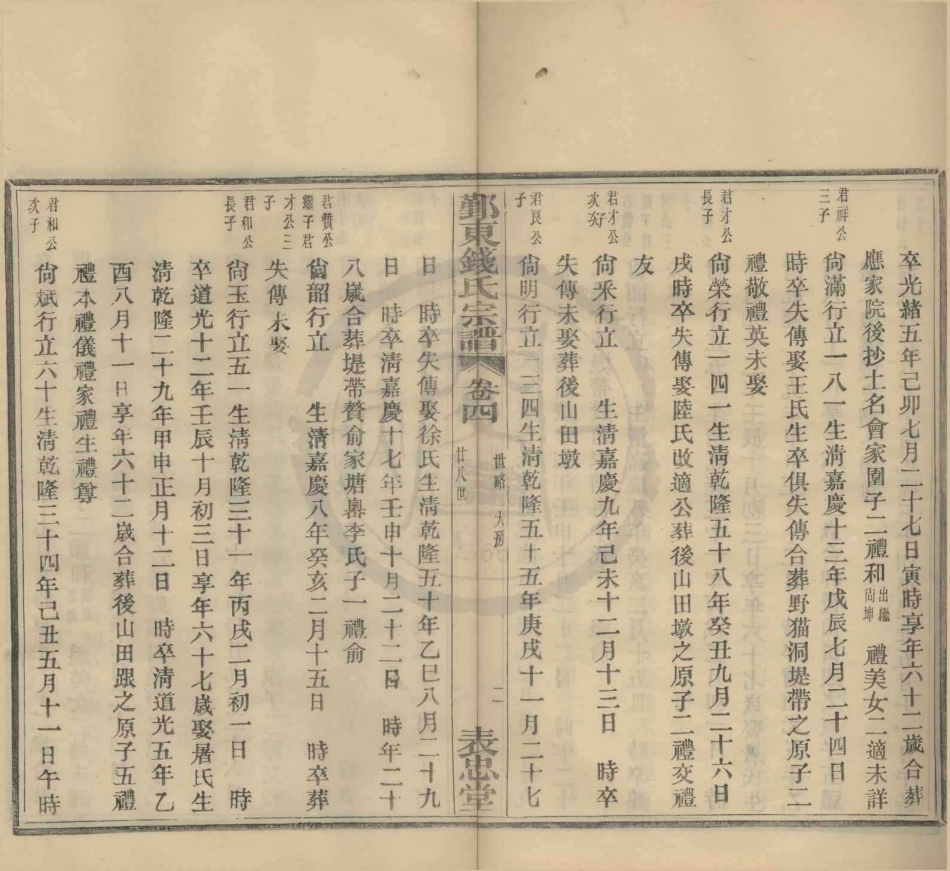 卒光緒五年己卯七月二十七日寅時享年六十二歲合葬
應家院後抄土名會家園子二禮和出繼尙坤 禮美女二適未詳
君祥公三子
尙滿行立一八一生淸嘉慶十三年戊辰七月二十四日
時卒失傳娶王氏生卒俱失傳合葬野猫洞堤帶之原子二
禮敬禮英未娶
君才公長子
尙榮行立一四一生淸乾隆五十八年癸丑九月二十六日
戌時卒失傳娶陸氏改適公葬後山田墩之原子二禮交禮
友
君才公次子
尙釆行立 生淸嘉慶九年己未十二月十三日 時卒
失傳未娶葬後山田墩
君良公子
尙明行立一三四生淸乾隆五十五年庚戌十一月二十七
鄞東錢氏宗譜 卷四 世略 大房 廿八世 二 表忠堂
日 時卒失傳娶徐氏生淸乾隆五十年乙巳八月二十九
日 時卒淸嘉慶十七年壬申十月二十二日 時年二十
八歲合葬堤帶贅俞家塘嶴李氏子一禮俞
君贊公繼子君才公三子
尙韶行立 生淸嘉慶八年癸亥二月十五日 時卒葬
失傳未娶
君和公長子
尙玉行立五一生淸乾隆三十一年丙戌二月初一日 時
卒道光十二年壬辰十月初三日享年六十七歲娶屠氏生
淸乾隆二十九年甲申正月十二日 時卒淸道光五年乙
酉八月十一日享年六十二歲合葬後山田跟之原子五禮
禮本禮儀禮家禮生禮尊
君和公次子
尙斌行立六十生淸乾隆三十四年己丑五月十一日午時